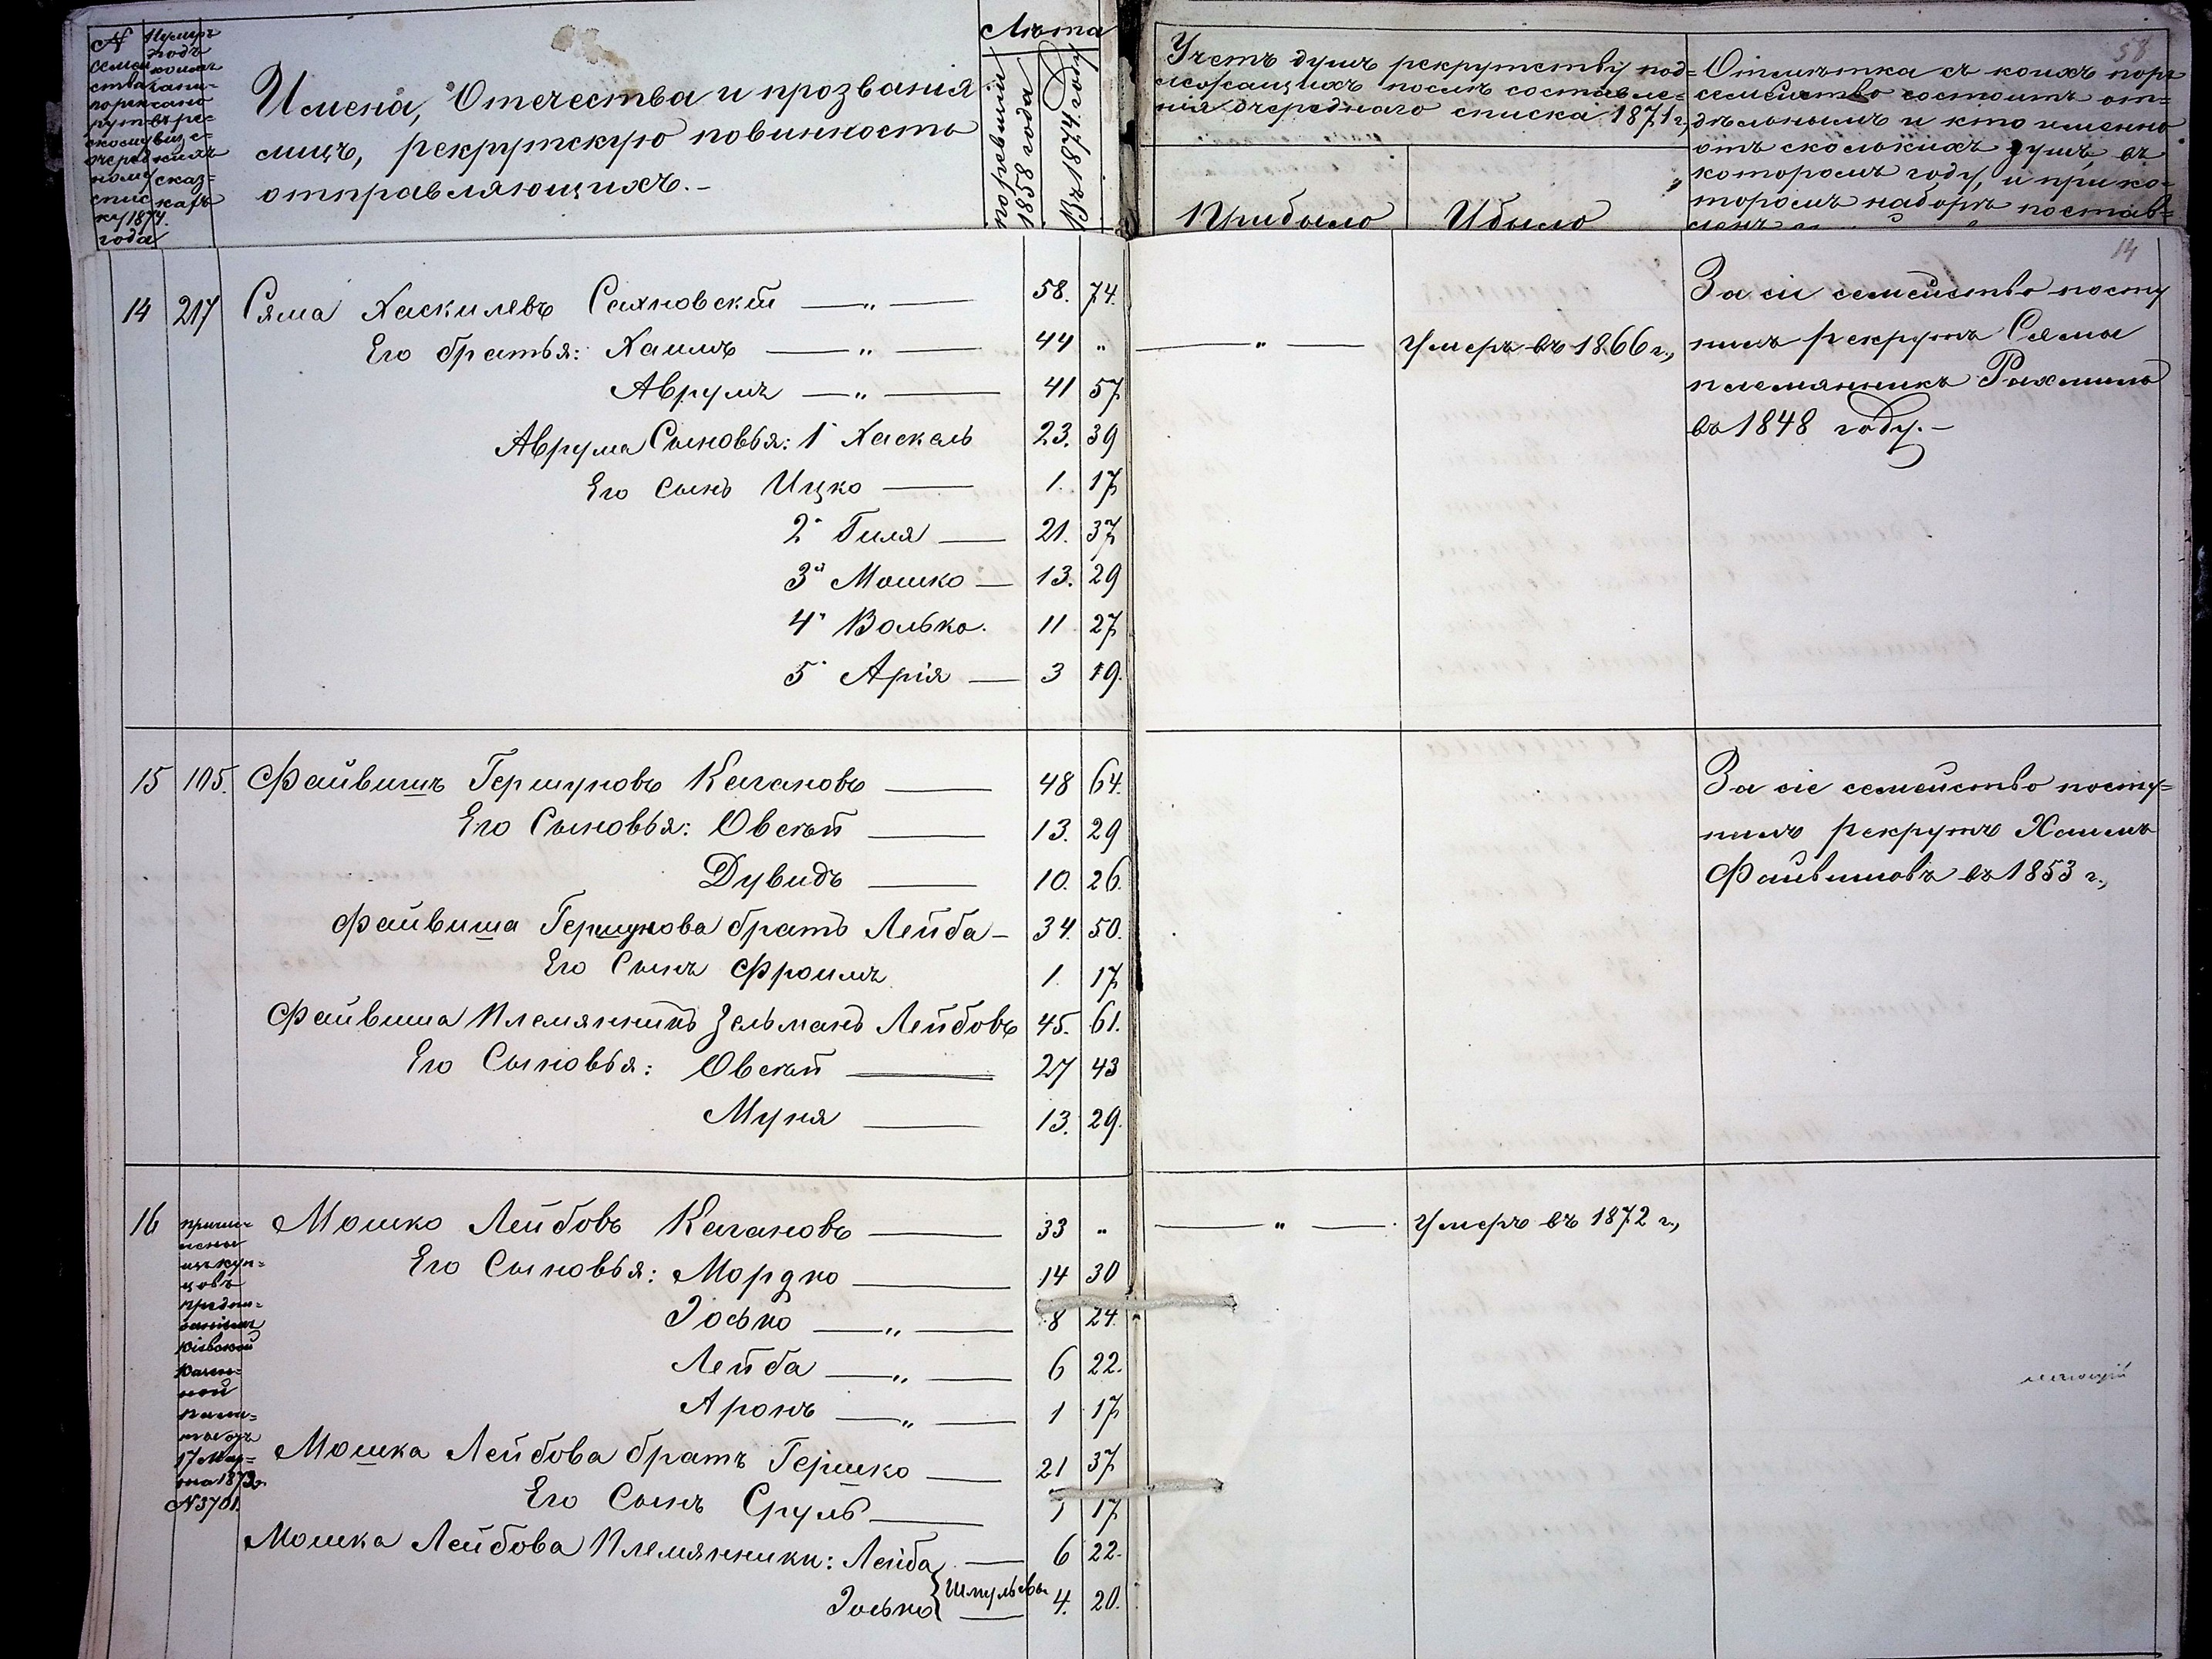 № семейства по рекрутскому очередному списку 1874. года
Нумеръ подъ коимъ записано въ ревизскихъ сказкахъ
Имена, Отечества и прозванія
лицъ, рекрутскую повинность
отправляющихъ.-
Лѣта
по ревизіи 1858 года
Въ 1874 году
Учетъ душъ рекрутству под=
лежащихъ послѣ составле=
нія очереднаго списка 1871 г.,
Прибыло
Убыло
58
Отмѣтка съ коихъ поръ
семейство состоитъ от=
дѣльнымъ и кто именно
отъ сколькихъ душъ въ
которомъ году, и при ко=
торомъ наборѣ постав=
ленъ
14
14 217 Сяма Хаскилевъ Саяновскій — " — 58. 74.
Его братья: Хаимъ — " — 44 " — " — Умеръ въ 1866 г.,
Аврумъ — " — 41 57
Аврума Сыновья: 1 Хаскель 23. 39
Его Сынъ Ицко — 1. 17
2 Гиля — 21. 37
3й Мошко — 13. 29
4 Волько. 11 27
5 Арія — 3 19.
За сіе семейство посту
пилъ рекрутъ Сямы
племянникъ Рахмиль
въ 1848 году.-
15 105. Файвишъ Гершуновъ Кагановъ — 48 64.
Его Сыновья: Овсѣй — 13. 29
Дувидъ — 10. 26.
Файвиша Гершунова братъ Лейба - 34. 50.
Его Сынъ Фроимъ 1. 17
Файвиша Племянникъ Зельманъ Лейбовъ 45. 61.
Его Сыновья: Овсѣй — 27 43
Муня — 13. 29.
За сіе семейство посту=
пилъ рекрутъ Хаимъ
Файвишовъ въ 1853 г.,
16 Мошко Лейбовъ Кагановъ — 33 " — " — Умеръ въ 1872 г.,
Его Сыновья: Мордко — 14 30
Іосько — " — 8 24.
Лейба — " — 6 22.
Аронъ — " — 1 17
Мошка Лейбова братъ Гершко — 21 37
Его Сынъ Сруль — 1 17
Мошка Лейбова Племянники: Лейба — 6 22.
Іосько } Шмульевы — 4. 20.
изъ куп=
цовъ
Кіевской
Казен=
ной
17 Мар=
№ 3701.